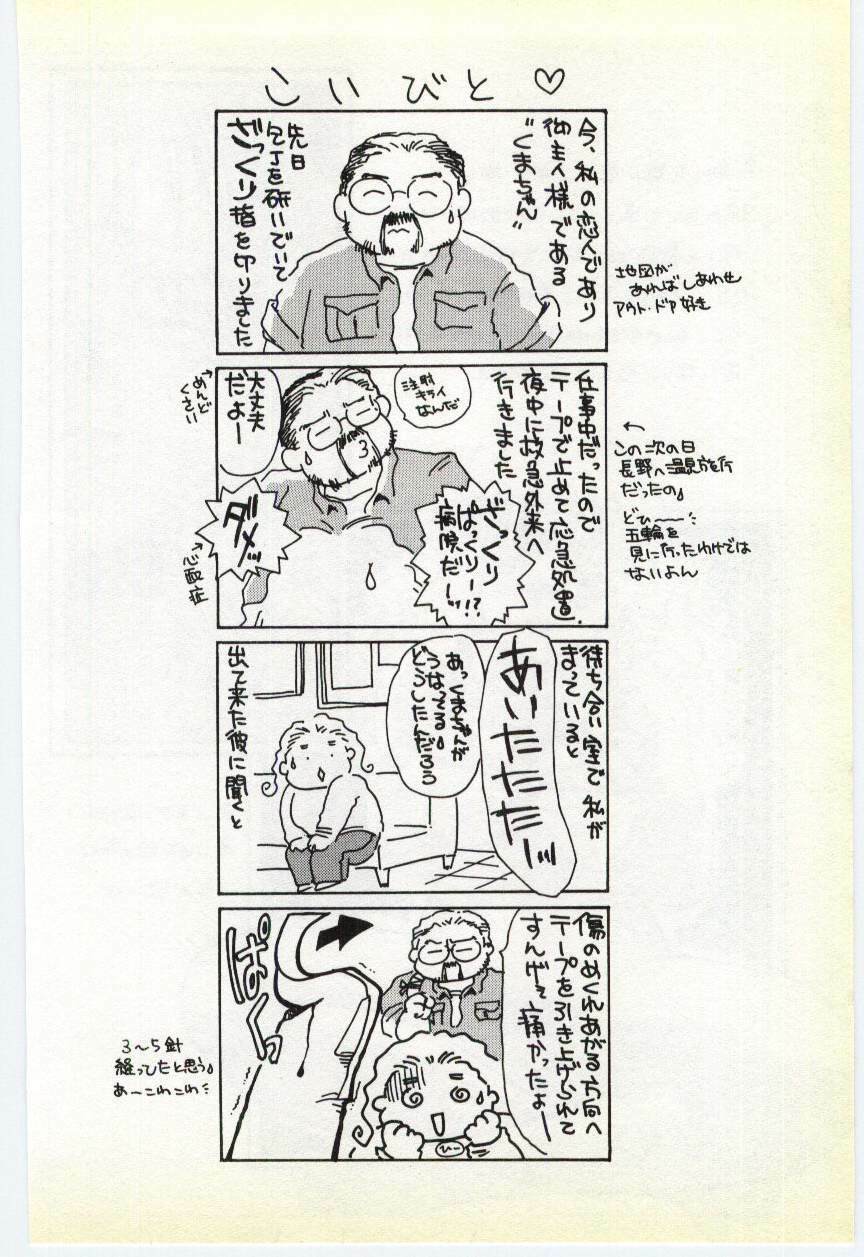 こいびと♡
今、私の恋人であり
御主人様である
“くまちゃん”
先日
包丁を研いでいて
ざっくり指を切りました
地図が
あればしあわせ
アウト・ドア好き
仕事中だったので
テープで止めて応急処置。
夜中に救急外来へ
行きました
注射
キライ
なんだ
大丈夫
だよー
めんど
くさい
ざっくり
ぱっくりー!?
病院だーッ!
ダメッ
心配症
←
この次の日
長野へ温泉旅行
だったの。
どひ〜〜
五輪を
見に行ったわけでは
ないよん
待ち合い室で私が
まっていると
あいたたたーッ
あっくまちゃんが
うなってる。
どうしたんだろう
出て来た彼に聞くと
傷のめくれあがる方向へ
テープを引き上げられて
すんげェ痛かったよー
ぱくっ
ひー
3〜5針
縫ってたと思う。
あーこわこわ